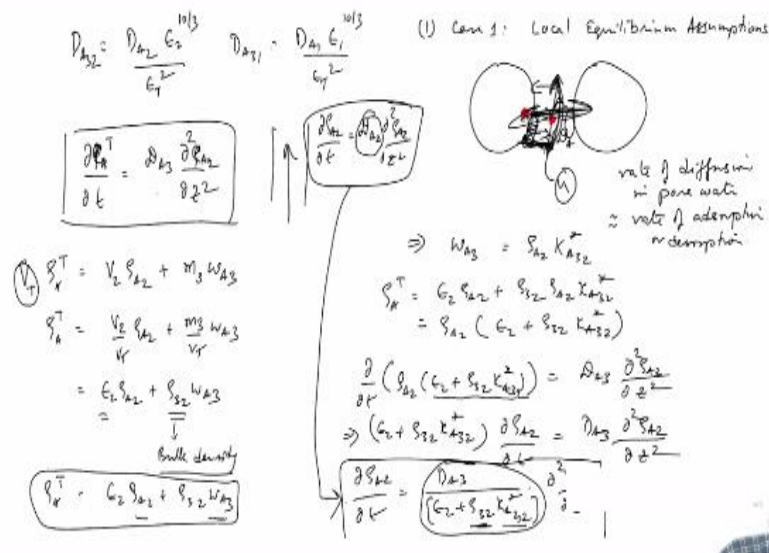 D_A32 = D_A2 ε_2^10/3 / ε_T^2    D_A31 = D_A1 ε_1^10/3 / ε_T^2
(1) Case 1: Local Equilibrium Assumptions
∂ρ_A^T / ∂t = D_A3 ∂^2 ρ_A2 / ∂z^2
∂ρ_A2 / ∂t = D_A2 ∂^2 ρ_A2 / ∂z^2
rate of diffusion
in pore water
≈ rate of adsorption
or desorption
V_T ρ_A^T = V_2 ρ_A2 + m_3 w_A3
ρ_A^T = V_2/V_T ρ_A2 + m_3/V_T w_A3
= ε_2 ρ_A2 + ρ_32 w_A3
Bulk density
ρ_A^T = ε_2 ρ_A2 + ρ_32 w_A3
⇒ w_A3 = ρ_A2 K_A32^*
ρ_A^T = ε_2 ρ_A2 + ρ_32 ρ_A2 K_A32^*
= ρ_A2 (ε_2 + ρ_32 K_A32^*)
∂/∂t (ρ_A2 (ε_2 + ρ_32 K_A32^*)) = D_A3 ∂^2 ρ_A2 / ∂z^2
⇒ (ε_2 + ρ_32 K_A32^*) ∂ρ_A2 / ∂t = D_A3 ∂^2 ρ_A2 / ∂z^2
∂ρ_A2 / ∂t = D_A3 / [ε_2 + ρ_32 K_A32^*] ∂^2 / ∂